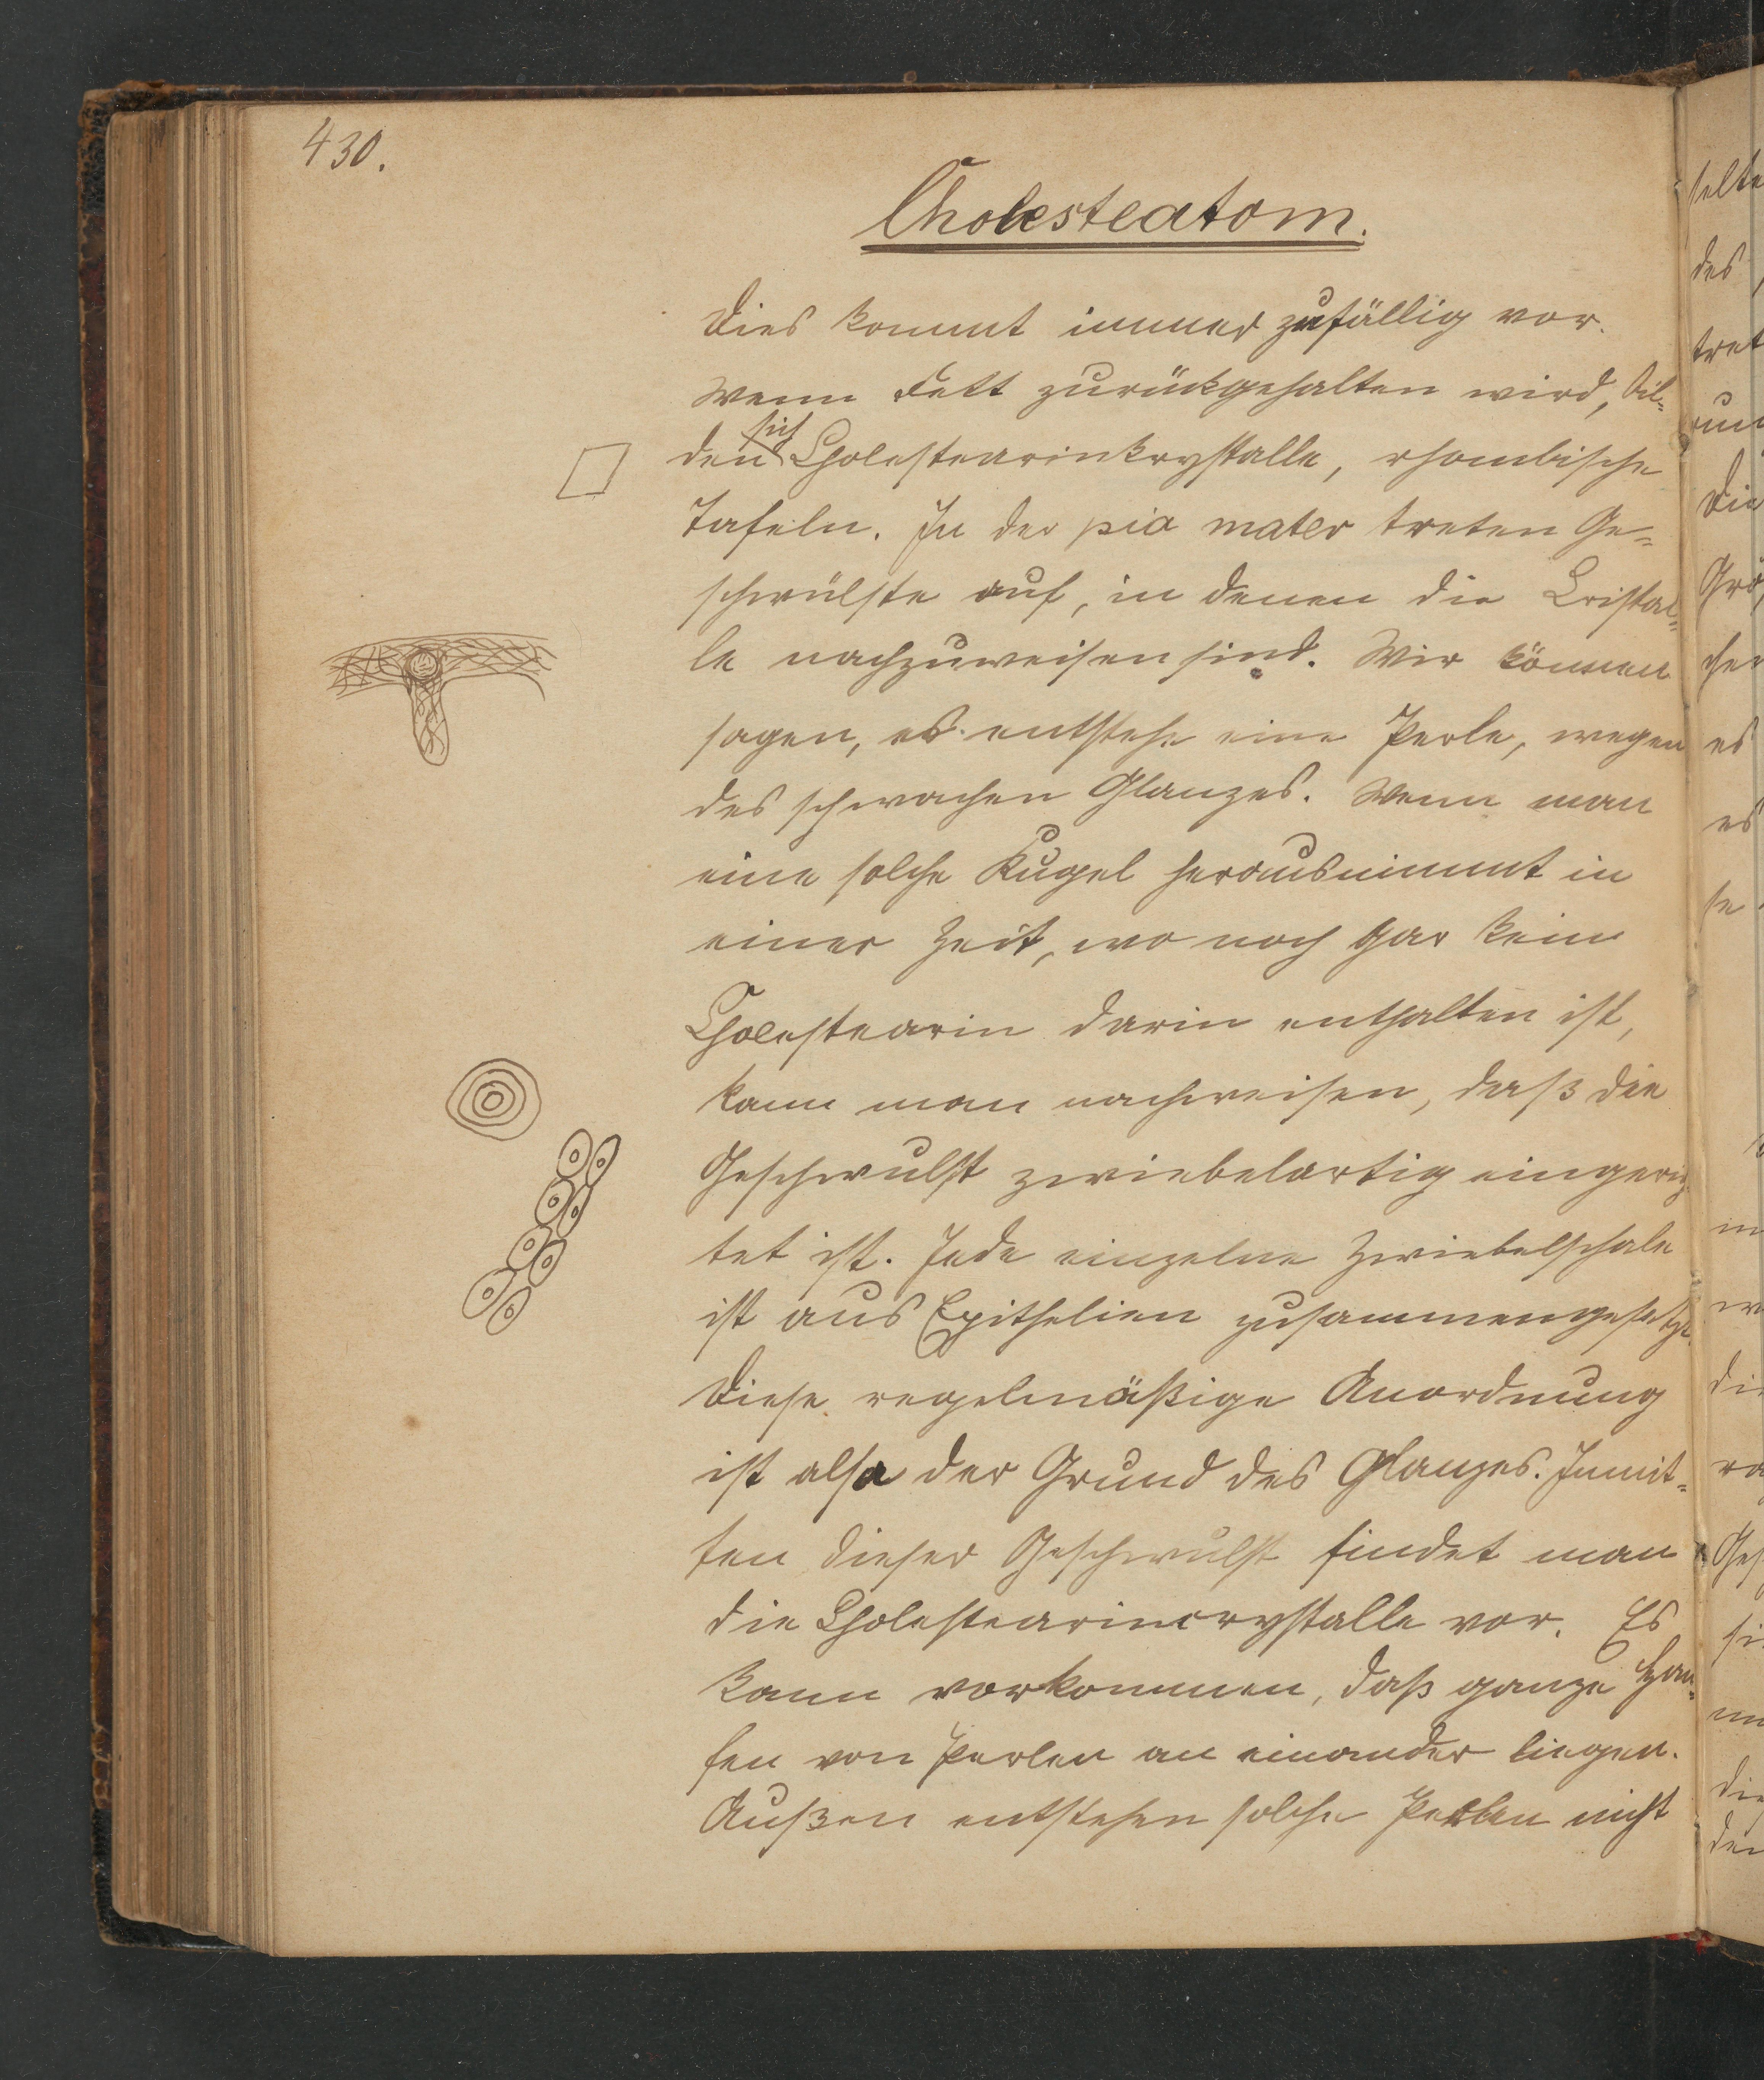 430.
Cholesteatom.
Dies kommt immer zufällig vor.
Wenn Fett zurückgehalten wird, bil=
sich
den Cholestearinkrystalle, rhombische
Tafeln. In der pia mater treten Ge=
schwülste auf, in denen die Cristal=
le nachzuweisen sind. Wir können
sagen, es entstehe eine Perle, wegen
des schwachen Glanzes. Wenn man
eine solche Kugel herausnimmt in
einer Zeit, wo noch gar kein
Cholestearin darin enthalten ist,
kann man nachweisen, daß die
Geschwulst zwiebelartig eingerich
tet ist. Jede einzelne Zwiebelschale
ist aus Epithelien zusammengesetzt.
Diese regelmäßige Anordnung
ist also der Grund des Glanzes. Inmit=
ten dieser Geschwulst findet man
die Cholestearincrystalle vor. Es
kann vorkommen, daß ganze Hau=
fen von Perlen an einander liegen.
Außen entstehen solche Perlen nicht